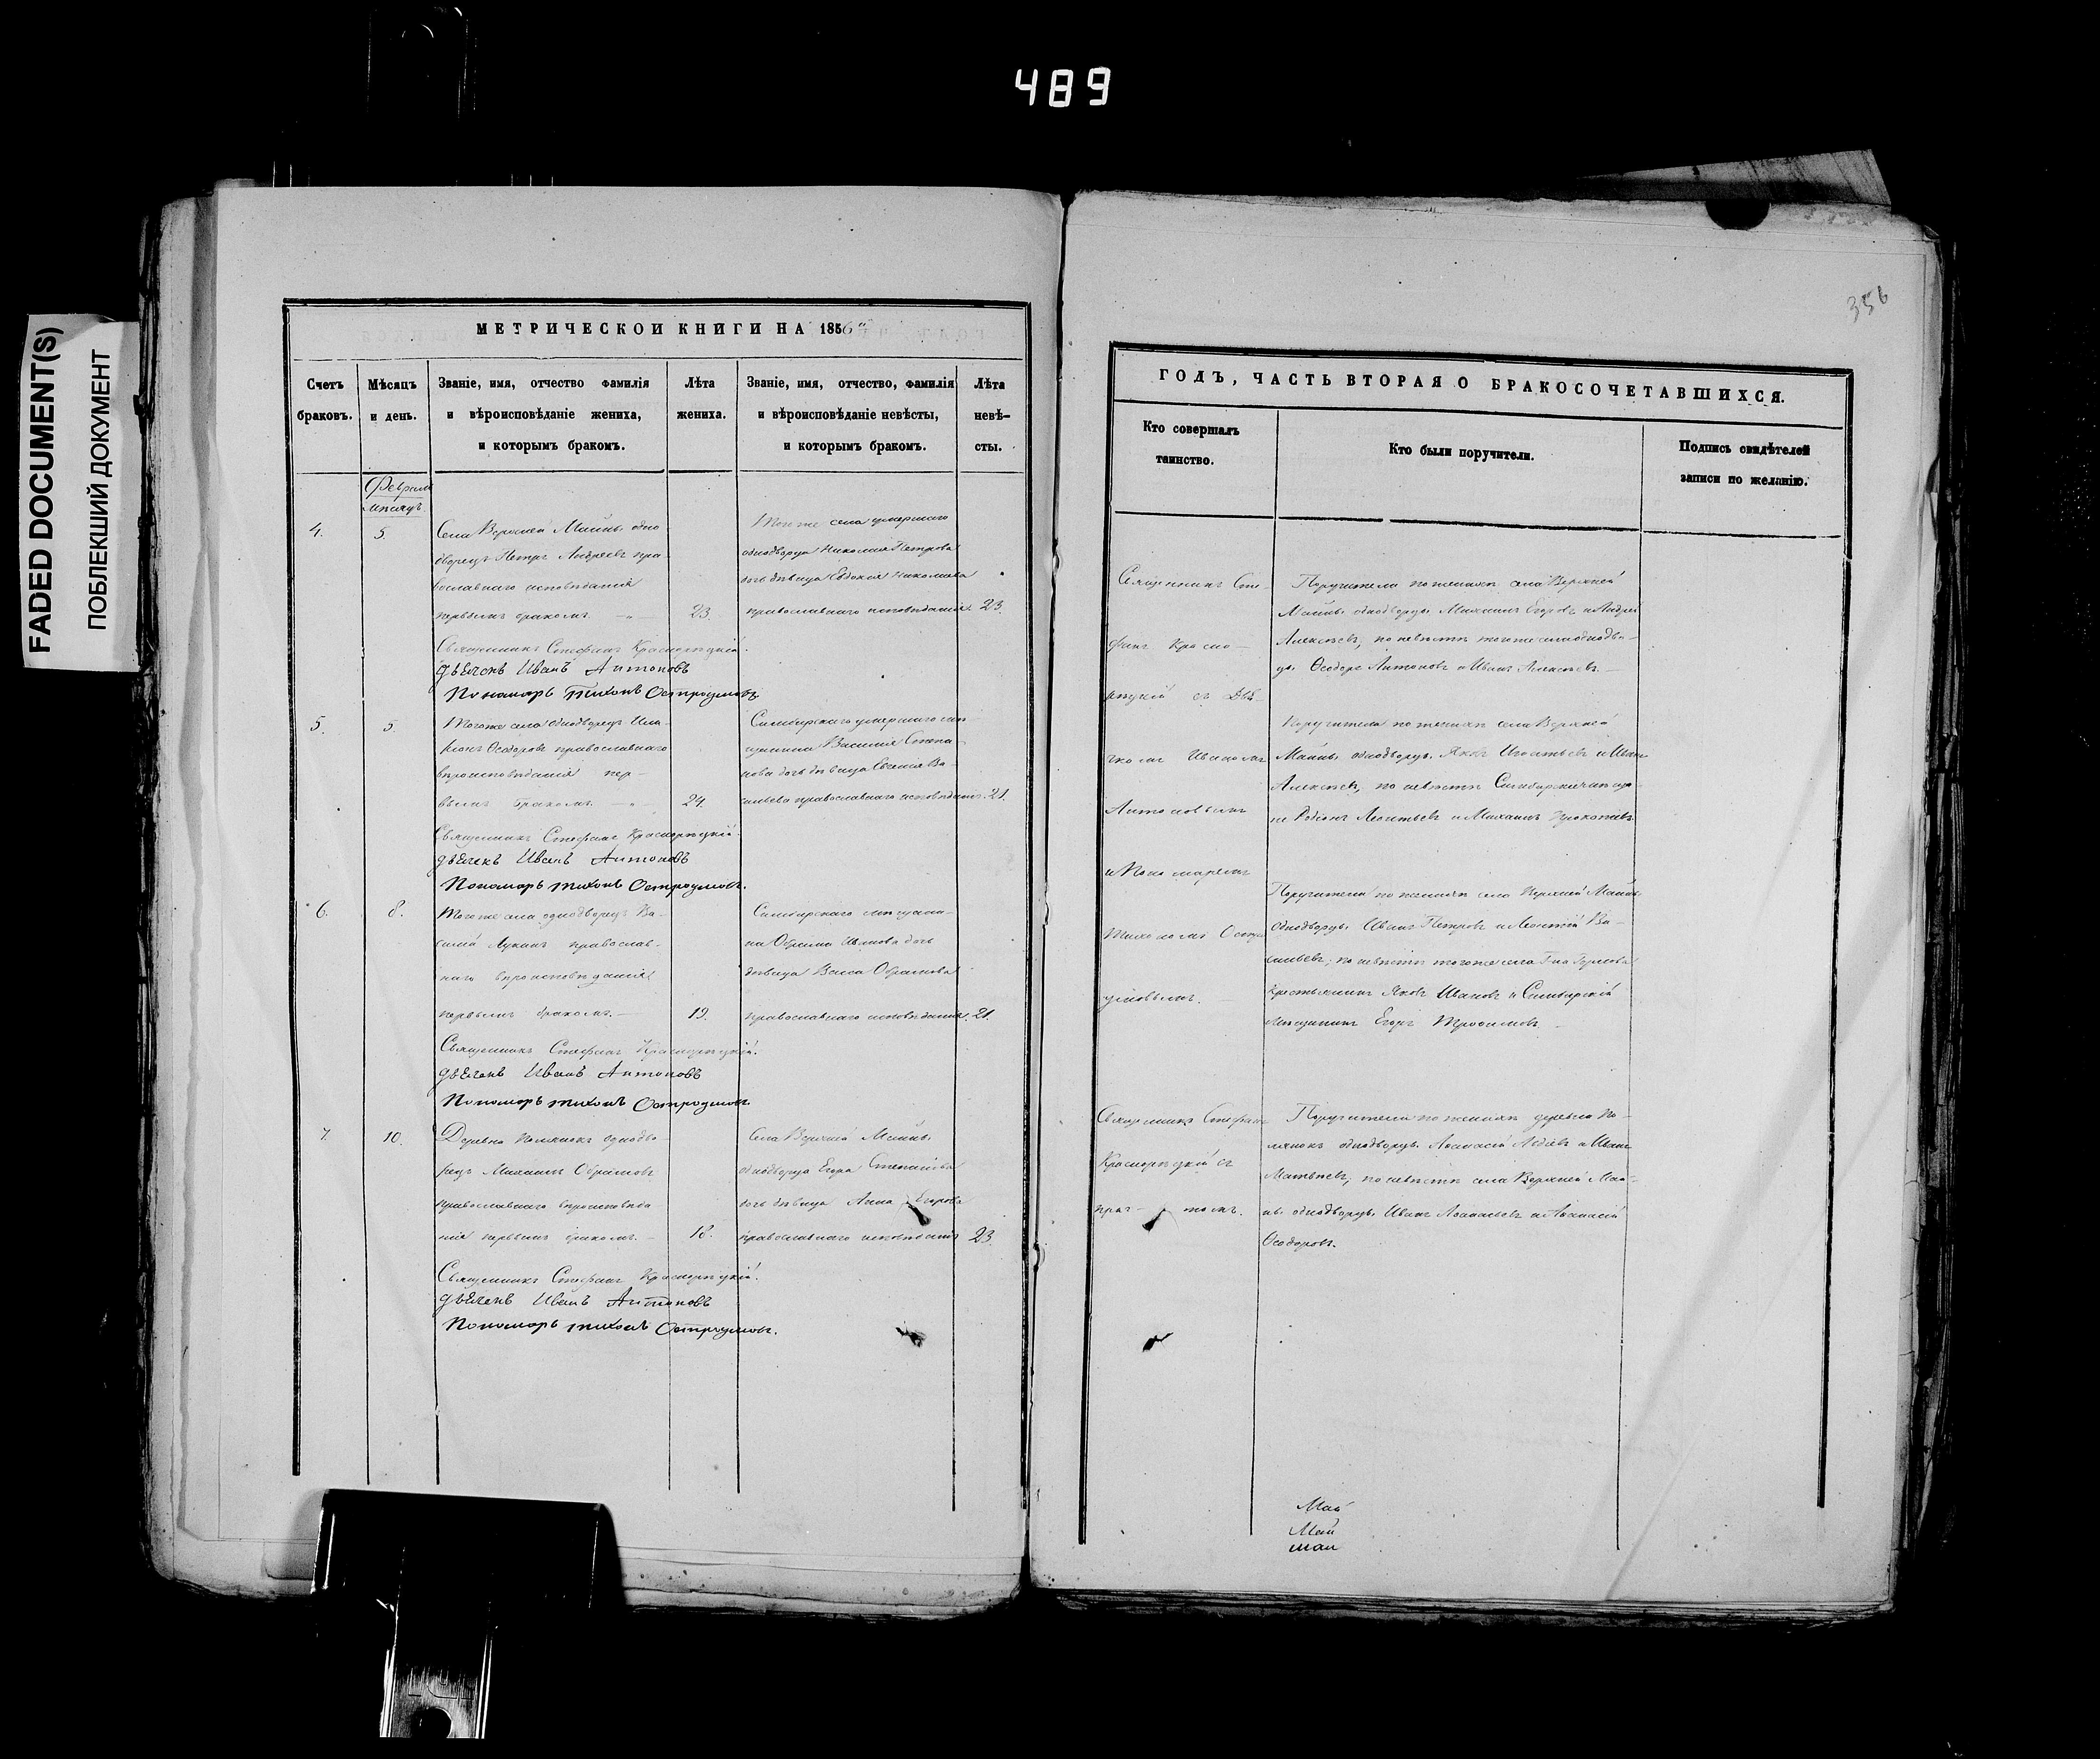 489
FADED DOCUMENT(S)
ПОБЛЕКШИЙ ДОКУМЕНТ
356
МЕТРИЧЕСКОИ КНИГИ НА 1856й
Счетъ браковъ.
Мѣсяцъ и день.
Званіе, имя, отчество фамилія
и вѣроисповѣданіе жениха,
и которымъ бракомъ.
Лѣта
жениха.
Званіе, имя, отчество, фамилія
и вѣроисповѣданіе невѣсты,
и которымъ бракомъ.
Лѣта
невѣ-
сты.
Февраль
мѣсяцъ
4.
5.
Села Верхней Майны одно
дворецъ Петръ Андреевъ пра-
вославнаго исповѣданія
первымъ бракомъ. — „ —
23.
Того же села умершаго
однодворца Николая Петрова
дочь дѣвица Евдокія Николаева
православнаго исповѣданія.
23.
Священникъ Стефанъ Краснорѣцкій.
дьячекъ Иванъ Антоновъ
Пономарь тихонъ Остроумовъ
5.
5.
Того же села однодворецъ Ила-
ріонъ Ѳеодоровъ православнаго
вѣроисповѣданія пер-
вымъ бракомъ. — „
24.
Симбирскаго умершаго мѣ
щанина Василія Степа-
нова дочь дѣвица Евгенія Ва-
сильева православнаго исповѣданія.
21.
Священникъ Стефанъ Краснорѣцкій.
дьячекъ Иванъ Антоновъ
Пономарь тихонъ Остроумовъ.
6.
8.
Того же села однодворецъ Ва-
силій Лукинъ православ-
наго вѣроисповѣданія
первымъ бракомъ. —
19.
Симбирскаго мѣщани-
на Ивана дочь
дѣвица Васса
православнаго исповѣданія.
21.
Священникъ Стефанъ Краснорѣцкій.
дьячекъ Иванъ Антоновъ
Пономарь тихонъ Остроумовъ.
7.
10.
Деревни Полянокъ однодво-
рецъ Михаилъ
православнаго вѣроисповѣда
нія первымъ бракомъ. —
18.
Села Верхней Майны
однодворца Егора Степанова
дочь дѣвица Анна Егорова
православнаго исповѣданія
23.
Священникъ Стефанъ Краснорѣцкій.
дьячекъ Иванъ Антоновъ
Пономарь тихонъ Остроумовъ.
ГОДЪ, ЧАСТЬ ВТОРАЯ О БРАКОСОЧЕТАВШИХСЯ.
Кто совершалъ
таинство.
Кто были поручители.
Подпись свидѣтелей
записи по желанію.
Священникъ Сте-
фанъ Красно-
рѣцкій съ Дья-
чкомъ Иваномъ
Антоновымъ
и Пономаремъ
Тихономъ Остро
умовымъ. —
Поручители по женихѣ села Верхней
Майны однодворцы Михаилъ Егоровъ и Андрей
Алексѣевъ, по невѣстѣ того же села однодвор-
цы Ѳеодоръ Антоновъ и Иванъ Алексѣевъ. —
Поручители по женихѣ села Верхней
Майны однодворцы Яковъ Игнатьевъ и Иванъ
Алексѣевъ, по невѣстѣ
Родіонъ Леонтьевъ и Михаилъ
Поручители по женихѣ села Верхней Майны
Однодворцы Иванъ Петровъ и Леонтій Ва-
сильевъ; по невѣстѣ того же села Г-на
крестьянинъ Яковъ Ивановъ и Симбирскій
мѣщанинъ Егоръ Трофимовъ. —
Священникъ Стефанъ
Краснорѣцкій съ
прич- томъ.
Поручители по женихѣ деревни По-
лянокъ однодворцы Аѳанасій и Иванъ
Матвѣевъ; по невѣстѣ села Верхней Май-
ны однодворцы Иванъ и Аѳанасій
Ѳеодоровъ.
Май
Май
май